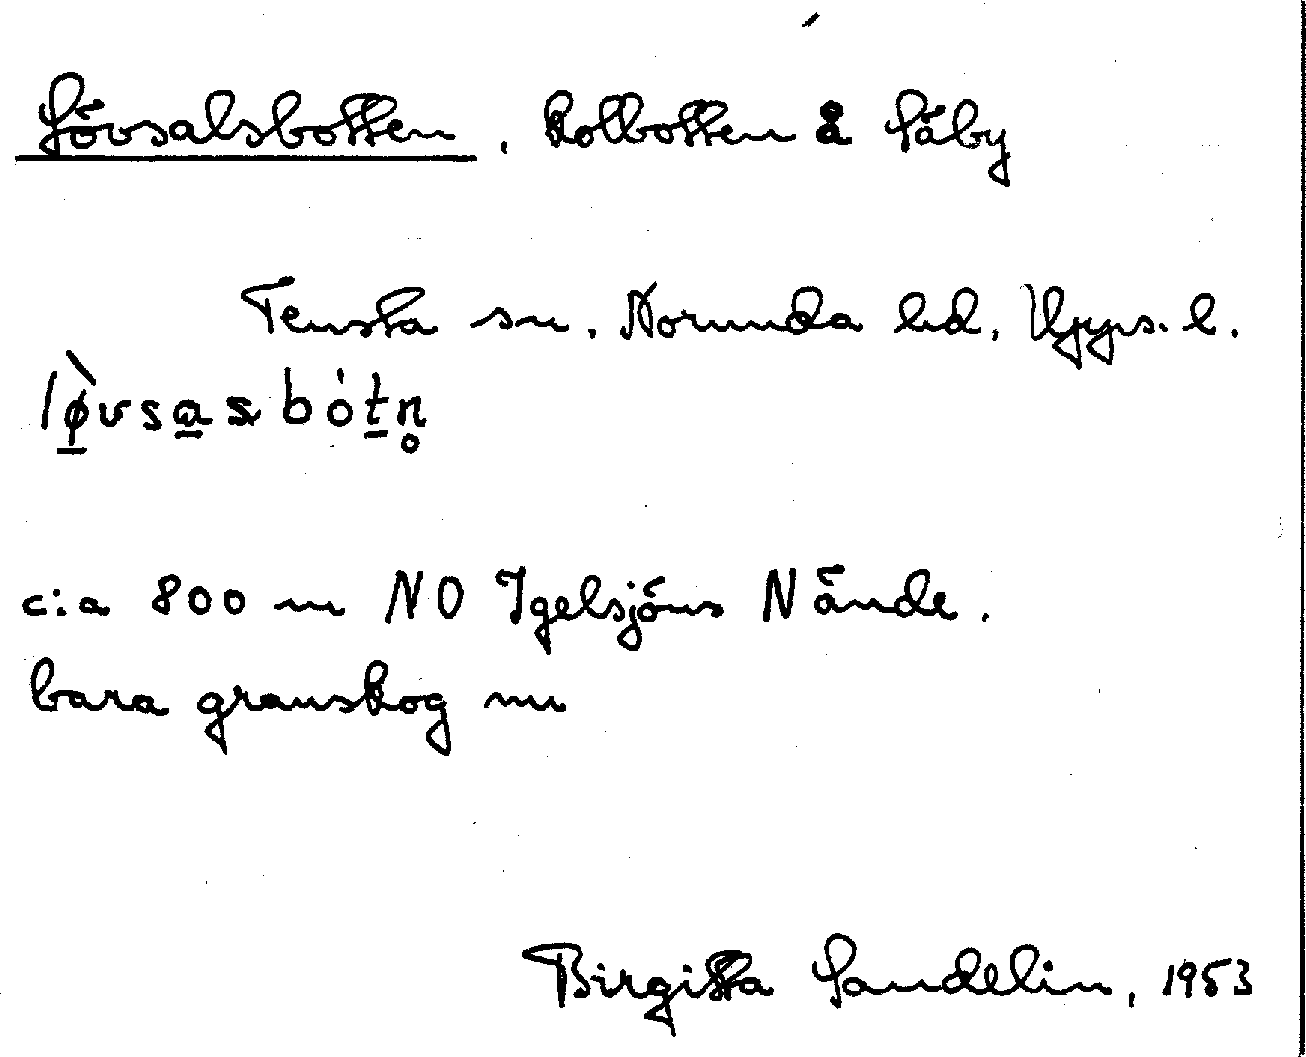 Lövsalsbotten, kolbotten å Säby
Tensta sn, Norunda hd, Upps. l.
lø̀vsasbótn̥
c:a 800 m NO Igelsjöns N ände.
bara granskog nu
Birgitta Sandelin, 1953